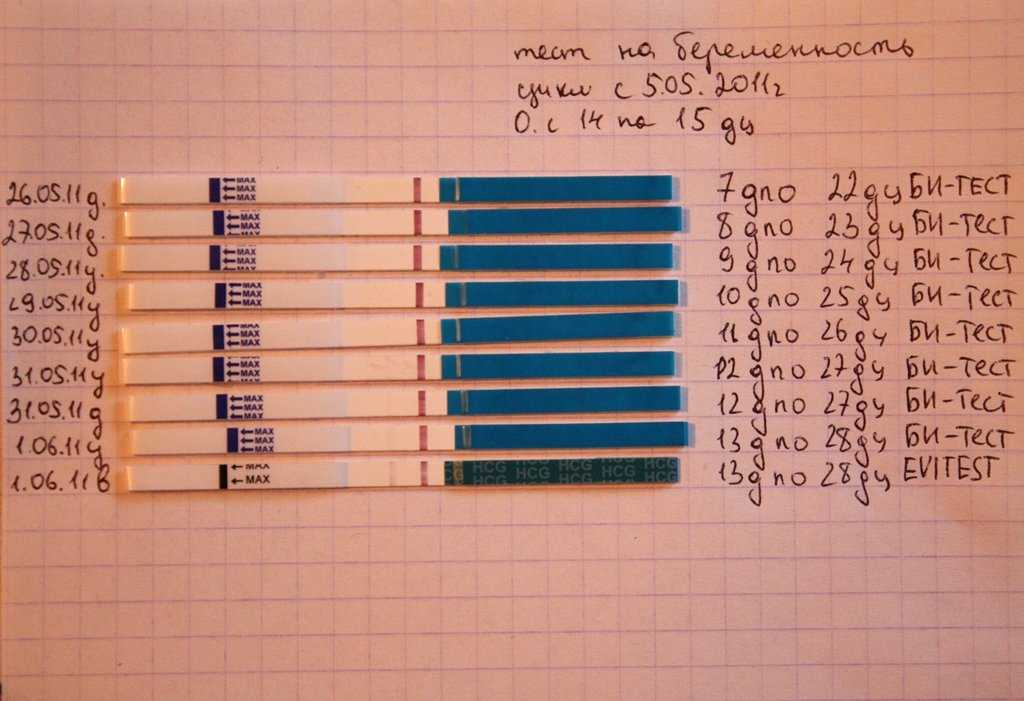 тест на беременность
цикл с 5.05. 2011г
О. с 14 по 15 дц
26.05.11 д. MAX MAX MAX 7 дпо 22 дц БИ-ТЕСТ
27.05.11 д. MAX MAX MAX 8 дпо 23 дц БИ-ТЕСТ
28.05.11 у. MAX MAX MAX 9 дпо 24 дц БИ-ТЕСТ
29.05.11 у MAX MAX MAX 10 дпо 25 дц БИ-ТЕСТ
30.05.11 у MAX MAX MAX 11 дпо 26 дц БИ-ТЕСТ
31.05.11 у MAX MAX MAX 12 дпо 27 дц БИ-ТЕСТ
31.05.11 д MAX MAX MAX 12 дпо 27 дц БИ-ТЕСТ
1.06.11 у MAX MAX MAX 13 дпо 28 дц БИ-ТЕСТ
1.06.11 в MAX MAX HCG HCG HCG HCG HCG HCG HCG HCG 13 дпо 28 дц EVITEST